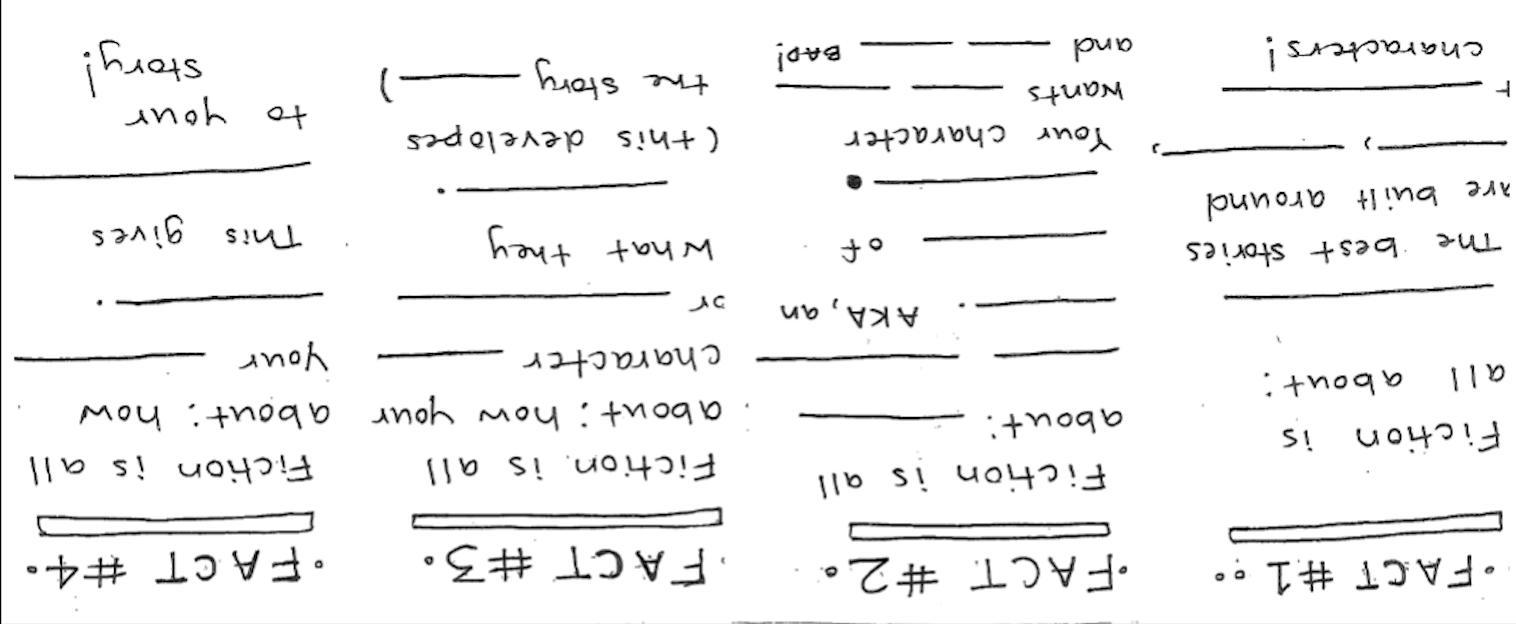 ·FACT #1··
Fiction is
all about:
________
The best stories
are built around
________, ________,
+ ________
characters!
·FACT #2·
Fiction is all
about: ________
________ ________
________. AKA, an
________ of
________.
Your character
wants ____ ____
and ____ ____ BAD!
·FACT #3·
Fiction is all
about: how your
character ________
or ________
what they
________.
(this developes
the story ________)
·FACT #4·
Fiction is all
about: how
your ________
________.
This gives
________
to your
story!